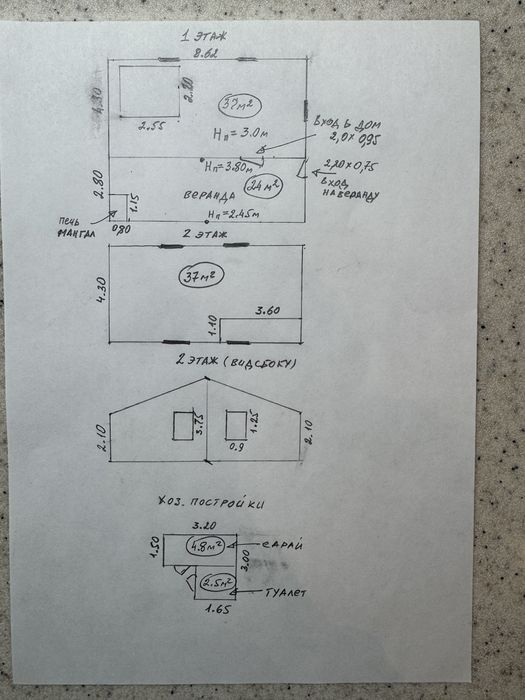 1 ЭТАЖ
8.62
4.30
2.20
2.55
37м²
Нп=3.0м
ВХОД В ДОМ
2,0 х 0,95
Нп=3.80м
2,20 х 0,75
ВХОД
НА ВЕРАНДУ
2.80
ВЕРАНДА
24 м²
1.15
ПЕЧЬ
МАНГАЛ
0,80
Нп=2.45м
2 ЭТАЖ
37м²
4.30
3.60
1.10
2 ЭТАЖ (ВИД СБОКУ)
2.10
3.75
1.25
0.9
2.10
ХОЗ. ПОСТРОЙКИ
3.20
1.50
4.8м²
САРАЙ
3.00
2.5м²
ТУАЛЕТ
1.65